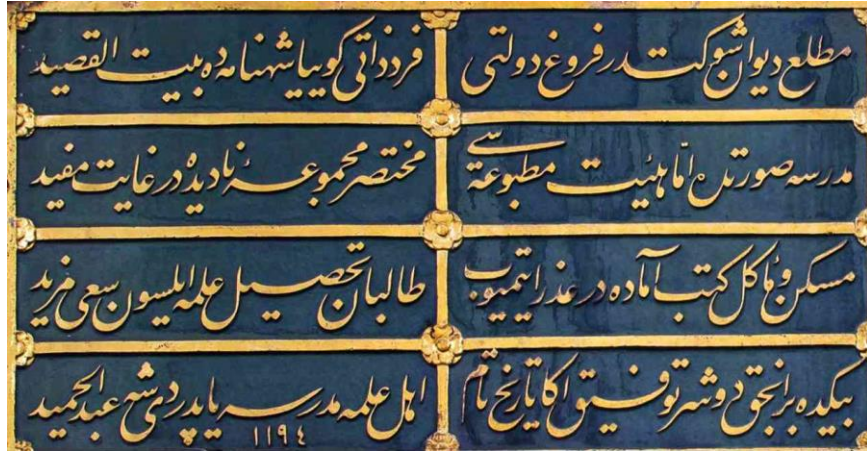 مطلع دیوان شوکتدر فروغ دولتی
فرد ذاتی کوییا شهنامه ده بیت القصید
مدرسه صورتده امّا هیئت مطبوعه سی
مختصر مجموعهٔ نادیده در غایت مفید
مسکن و مأکل کتب آماده در عذر ایتمیوب
طالبان تحصیل علمه ایلیسون سعی مزید
بیکده بر انجق دوشر توفیق اکا تاریخ تام
اهل علمه مدرسه یاپدردی شه عبدالحمید
١١٩٤